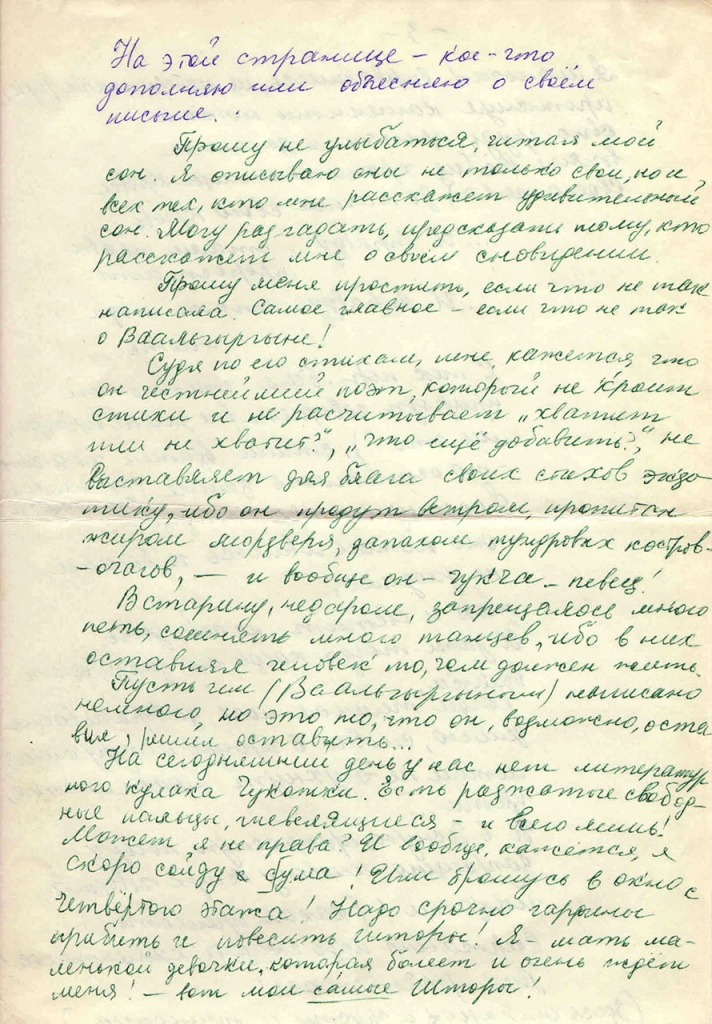 На этой странице – кое-что
дополняю или объясняю о своём
письме..
Прошу не улыбаться, читая мой
сон. Я описываю сны не только свои, но и
всех тех, кто мне расскажет удивительный
сон. Могу разгадать, предсказать тому, кто
расскажет мне о своём сновидении.
Прошу меня простить, если что не так
написала. Самое главное – если что не так
о Ваальгыргыне!
Судя по его стихам, мне кажется, что
он честнейший поэт, который не кроит
стихи и не расчитывает „хватит
или не хватит?", „что ещё добавить?", не
вставляет для блага своих стихов экзо-
тику, ибо он продут ветром, пропитан
жиром морзверя, запахом тундровых костров-
-очагов, – и вообще он – чукча – певец!
В старину, недаром, запрещалось много
петь, сочинять много танцев, ибо в них
оставлял человек то, чем должен жить.
Пусть им (Ваальгыргыном) написано
немного, но это то, что он, возможно, оста
вил, решил оставить...
На сегодняшний день у нас нет литератур
ного кулака Чукотки. Есть разжатые свобод-
ные пальцы, шевелящиеся – и всего лишь!
Может я не права? И вообще, кажется, я
скоро сойду с бума! Или брошусь в окно с
четвёртого этажа! Надо срочно гардины
прибить и повесить шторы! Я – мать ма-
ленькой девочки, которая болеет и очень ждёт
меня! – вот мои самые Шторы!